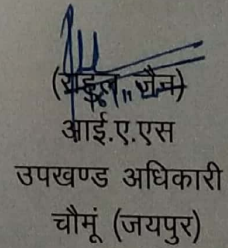 (राहुल जैन)
आई.ए.एस
उपखण्ड अधिकारी
चौमूं (जयपुर)